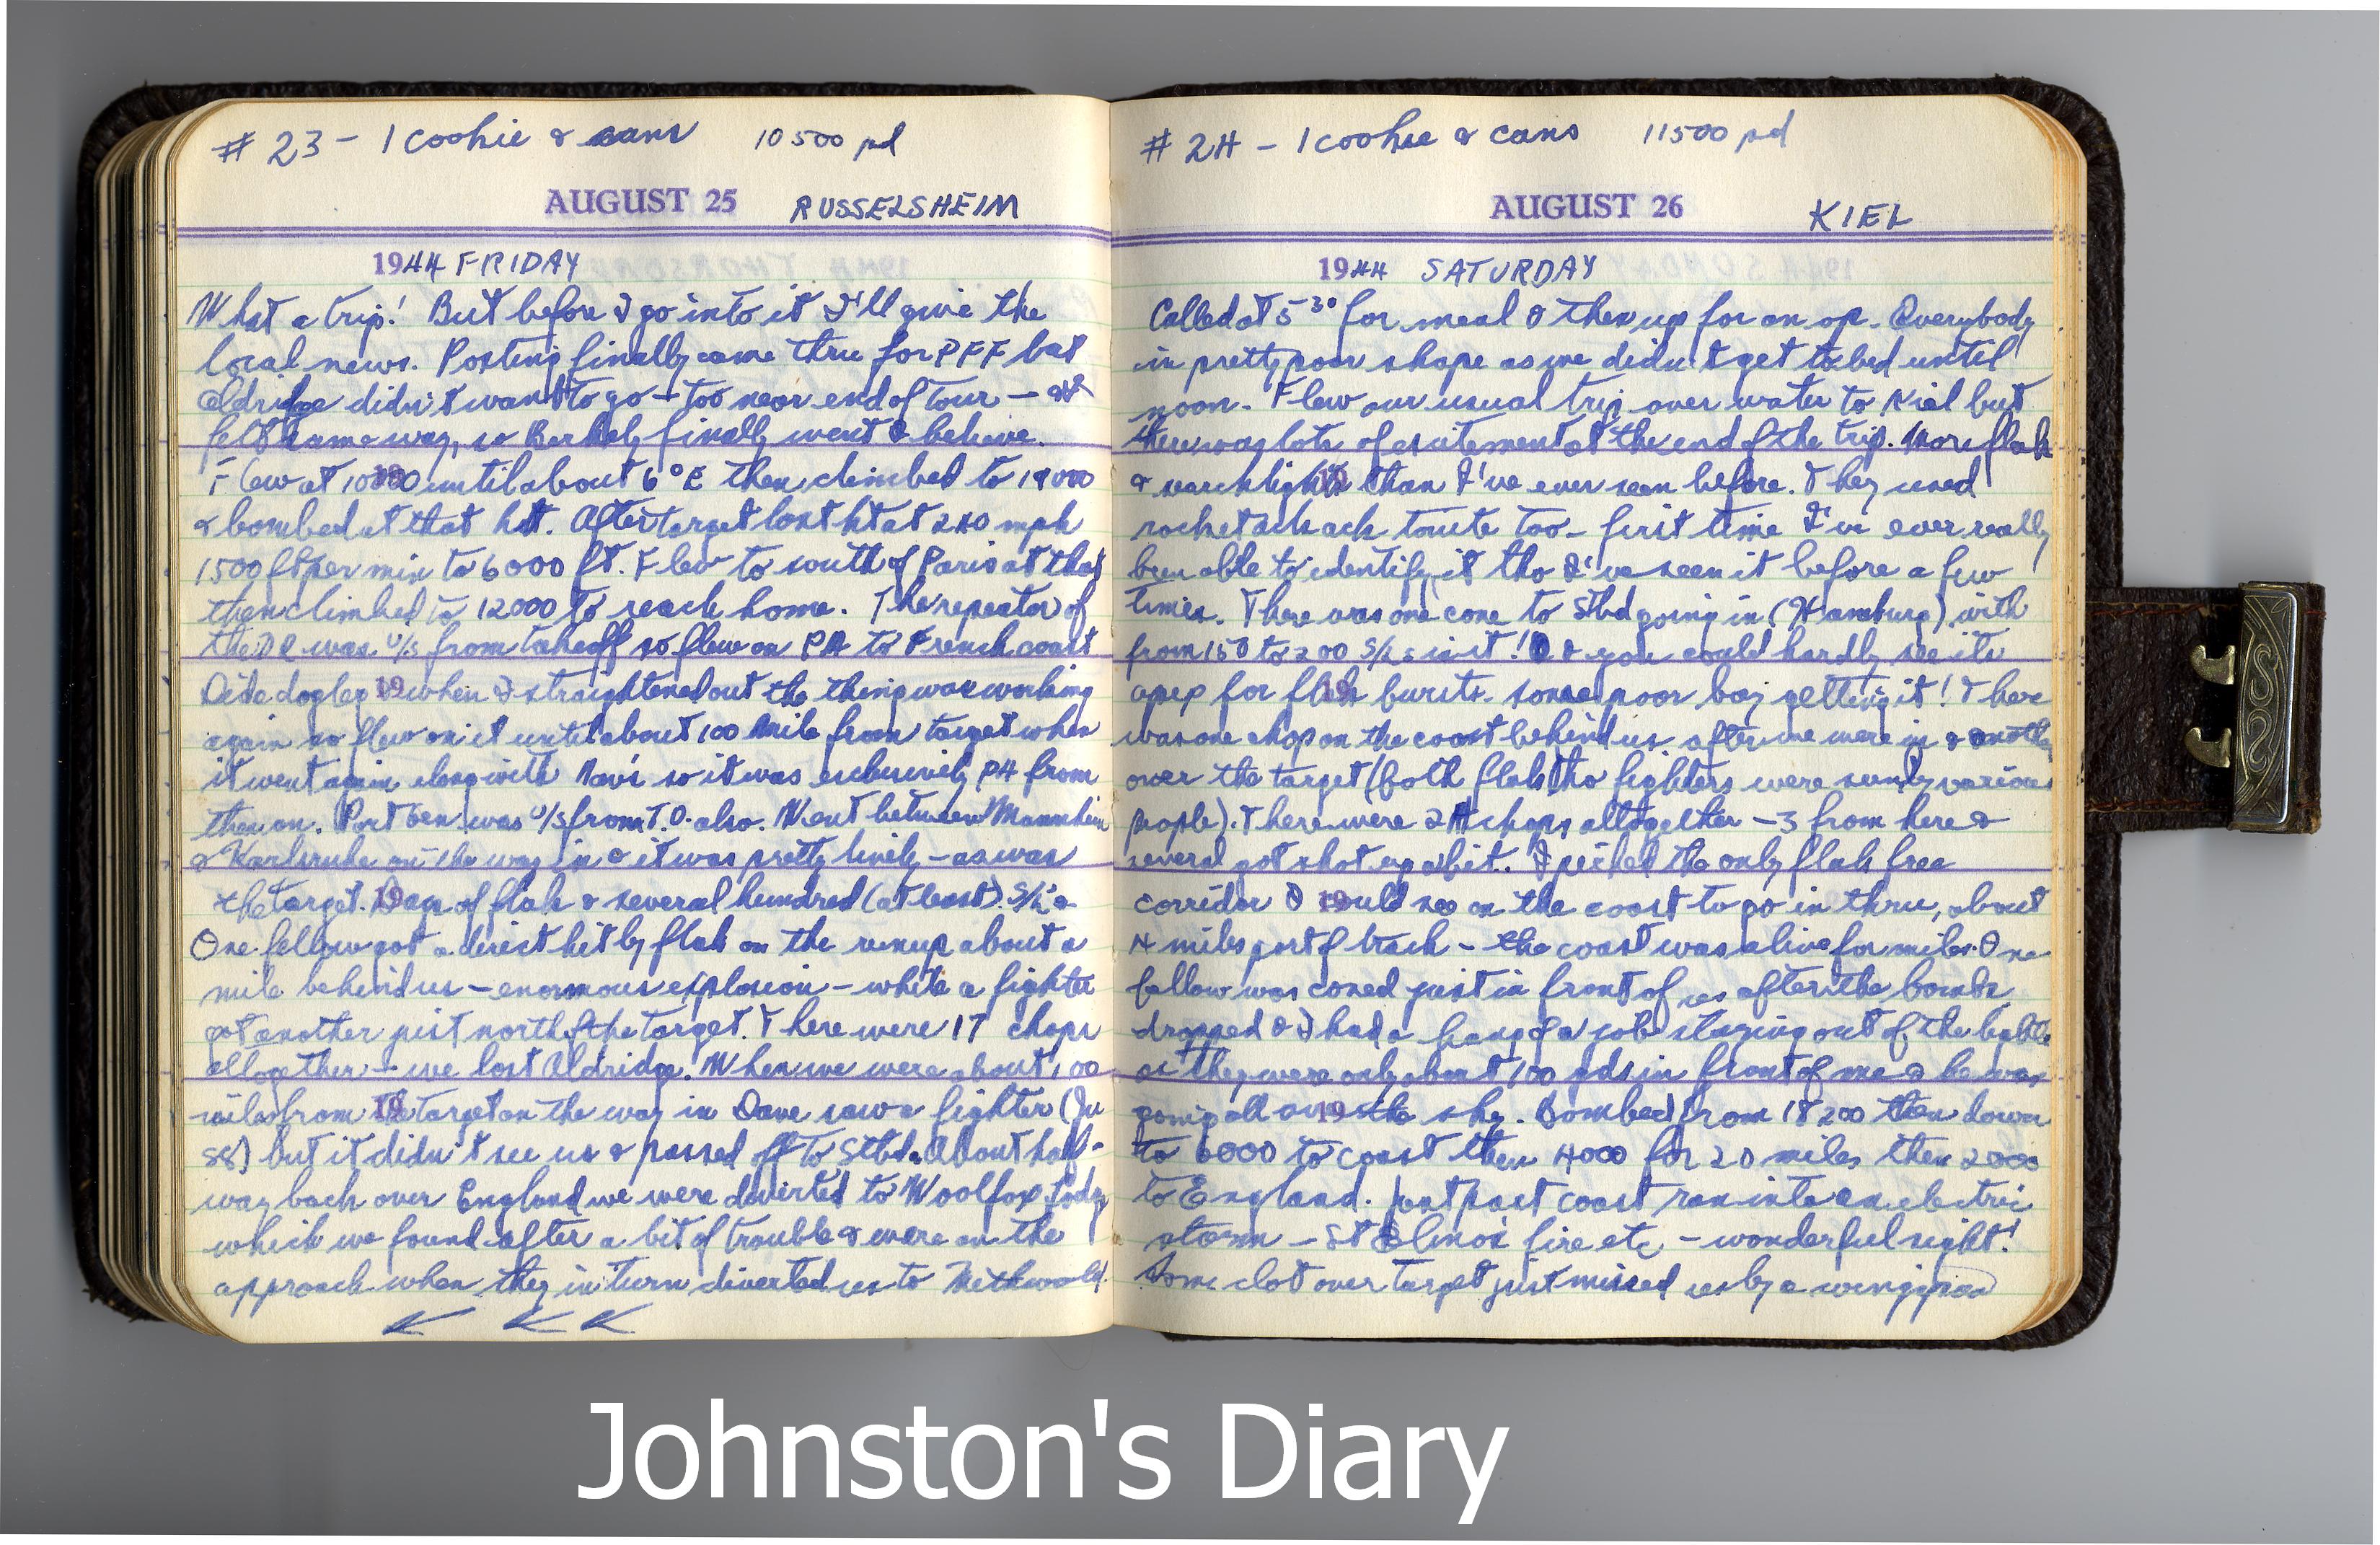 # 23 - 1 cookie & cans 10500 pd
AUGUST 25 RUSSELSHEIM
1944 FRIDAY
What a trip! But before I go into it I'll give the
local news. Posting finally came thru for PFF but
Aldridge didn't want to go - too near end of tour -
felt same way, so Berkely finally went I believe.
Flew at 10000 until about 6°E then climbed to 19000
& bombed at that ht. After target lost ht at 240 mph
1500 ft per min to 6000 ft. Flew to south of Paris at that
then climbed to 12000 to reach home. The repeater of
the DR was U/S from takeoff so flew on P4 to French coast
Did a dogleg & when I straightened out the thing was working
again so flew on it until about 100 mile from target when
it went again along with Nav's so it was exclusively P4 from
then on. Port Gen was U/S from T.O. also. Went between Mannheim
& Karlsruhe on the way in & it was pretty lively - as was
the target. Bags of flak & several hundred (at least) S/L's
One fellow got a direct hit by flak on the runup about a
mile behind us - enormous explosion - while a fighter
got another just north of the target. There were 17 chops
altogether - we lost Aldridge. When we were about 100
miles from the target on the way in Dave saw a fighter (Ju
88) but it didn't see us & passed off to Stbd. About half-
way back over England we were diverted to Woolfox Lodge
which we found after a bit of trouble & were on the
approach when they in turn diverted us to Methwold.
← ← ←
# 24 - 1 cookie & cans 11500 pd
AUGUST 26 KIEL
1944 SATURDAY
Called at 5³⁰ for meal & then up for an op. Everybody
in pretty poor shape as we didn't get to bed until
noon. Flew our usual trip over water to Kiel but
there was lots of excitement at the end of the trip. More flak
& searchlights than I've ever seen before. They used
rocket ack ack tonite too - first time I've ever really
been able to identify it tho I've seen it before a few
times. There was one cone to Stbd going in (Hamburg) with
from 150 to 200 S/Ls in it! & you could hardly see its
apex for flak bursts. Some poor boy getting it! There
was one chop on the coast behind us after we were in & another
over the target (both flak tho fighters were seen by various
people). There were 24 chops altogether - 3 from here &
several got shot up a bit. I picked the only flak free
corridor I could see on the coast to go in thru, about
4 miles port of track - the coast was alive for miles. One
fellow was coned just in front of us after the bombs
dropped & I had a heap of a job staying out of the
as they were only about 100 yds in front of me & he was
going all over the sky. Bombed from 18200 then down
to 6000 to coast then 4000 for 20 miles then 2000
to England. Just past coast ran into an electric
storm - St Elmo's fire etc - wonderful sight!
Some clot over target just missed us by a wingspan
Johnston's Diary